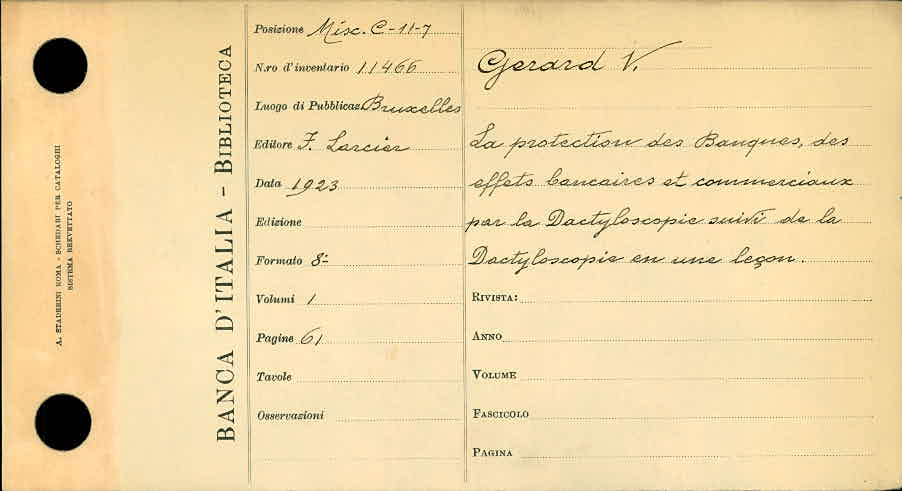 A. STADERINI ROMA - SCHEDARI PER CATALOGHI
SISTEMA BREVETTATO
BANCA D'ITALIA - BIBLIOTECA
Posizione Misc. C-11-7
N.ro d'inventario 11466
Luogo di Pubblicaz. Bruxelles
Editore F. Larcier
Data 1923
Edizione
Formato 8-
Volumi 1
Pagine 61
Tavole
Osservazioni
Gerard V.
La protection des Banques, des
effets bancaires et commerciaux
par la Dactyloscopie suivi de la
Dactyloscopie en une leçon.
RIVISTA:
ANNO
VOLUME
FASCICOLO
PAGINA